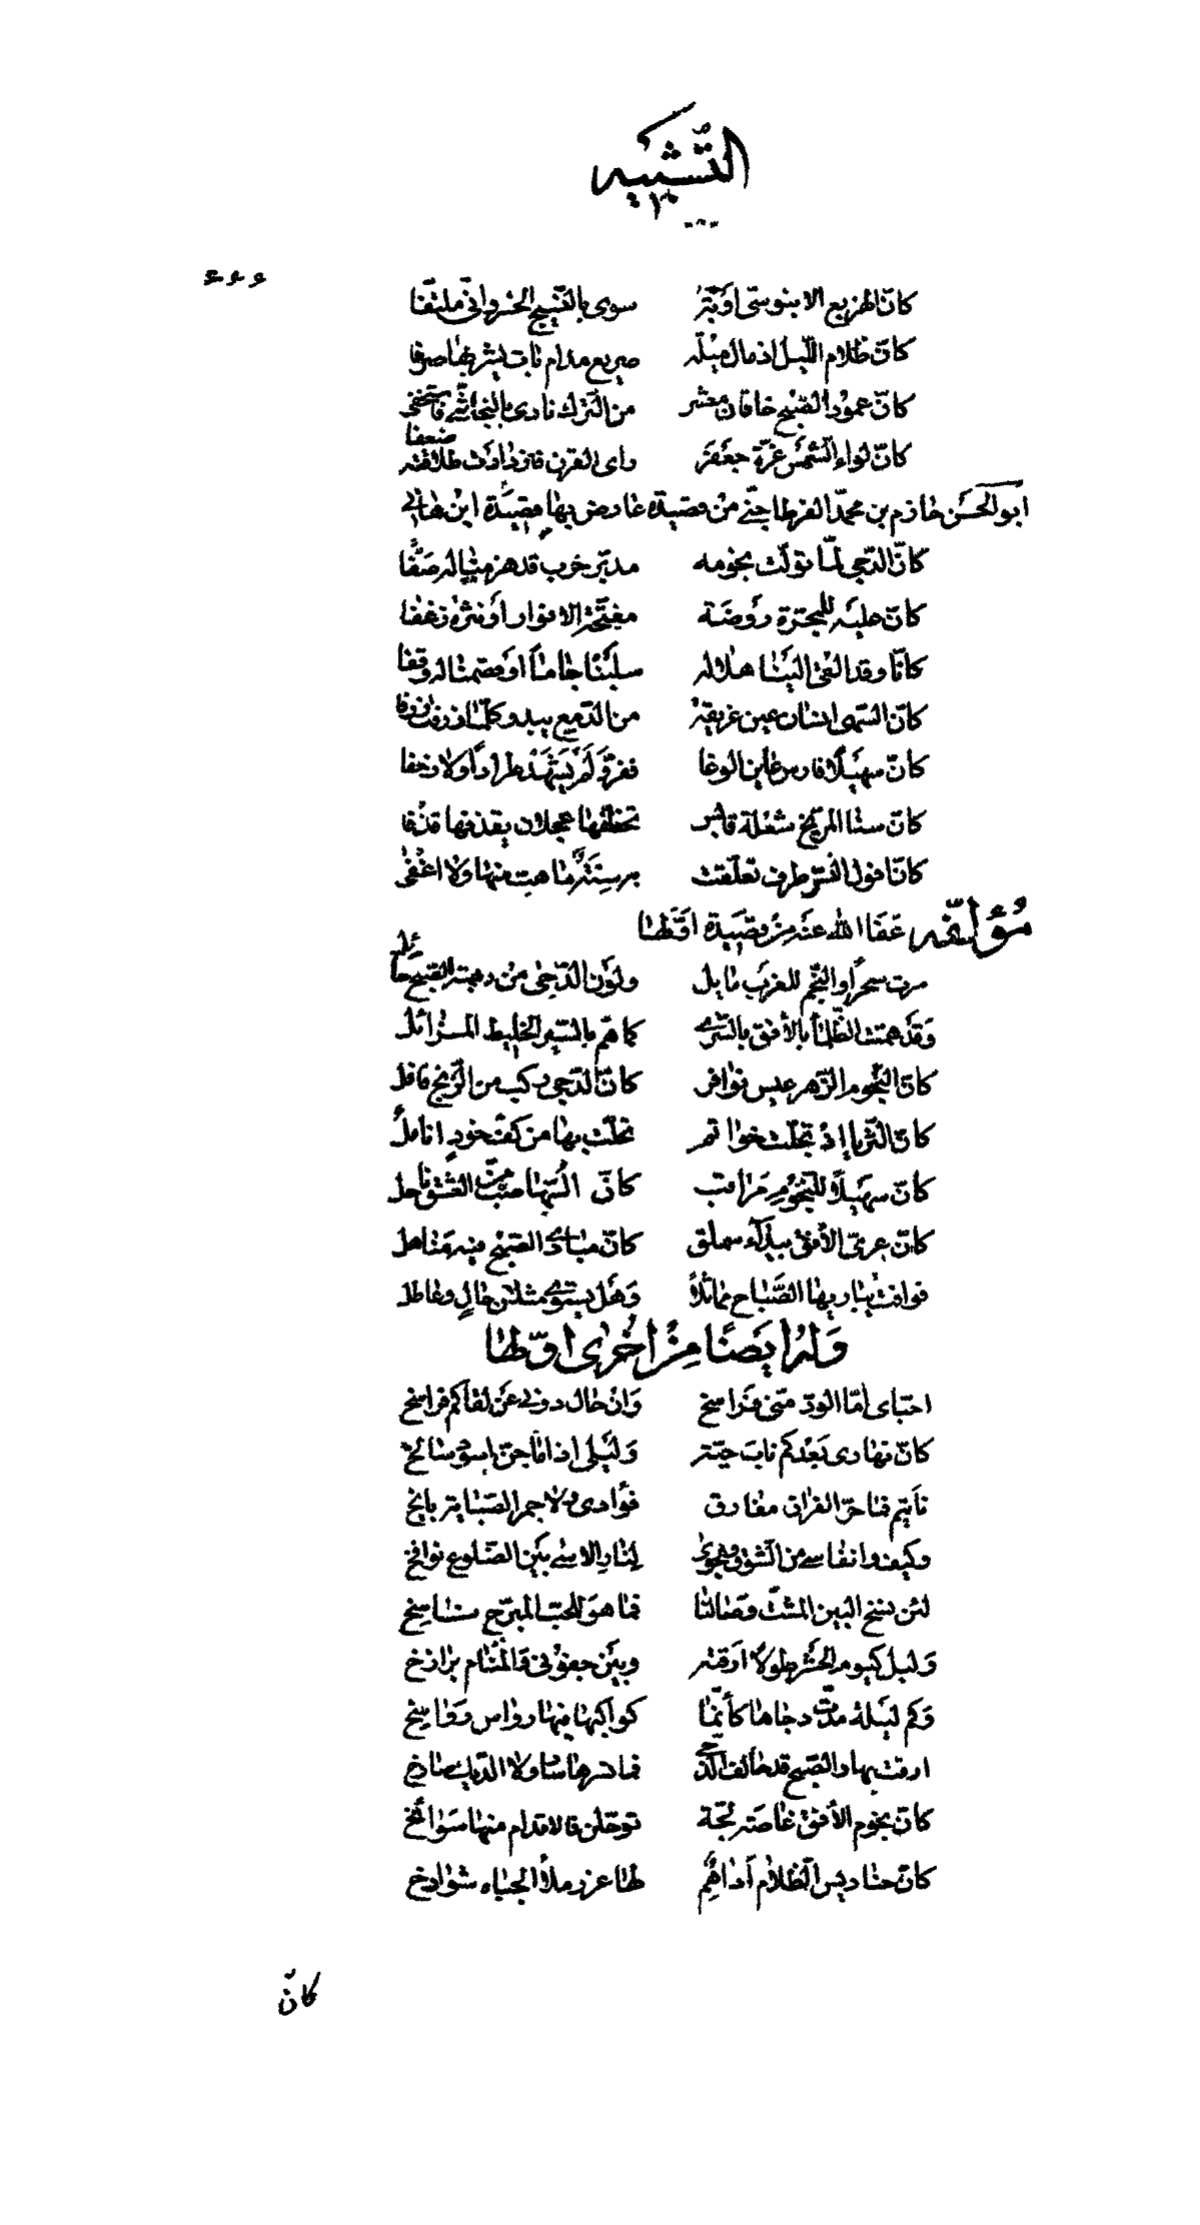 التّشبيه
٤٤٤
كانّ الهزيع الابنوسى اوبته سوى بالنسيج الخسروانى ملتفّا
كانّ ظلام اللّيل اذ مال ميله صريع مدام بات يشربها صرفا
كانّ عمود الصّبح خاقان معشر من الترك نادى بالنجاشى فاستخفى
كانّ لواء الشّمس غرّة جعفر راى القرن فازدادت طلاقته ضعفا
ابو الحسن حازم بن محمّد القرطاجنّى من قصيدة عارض بها قصيدة ابن هانى
كانّ الدّجى لمّا تولّت نجومه مدبّر حرب قد هزمنا له صفّا
كانّ عليه للمجرّة روضة مفتّحة الانوار او نثرة زغفا
كانّا وقد القى الينا هلاله سلبنا جاما او فصمنا له وقفا
كانّ السّهى انسان عين غريقة من الدّمع يبدو كلّما ذرفت ذرفا
كانّ سهيلا فارس عاين الوغا ففرّ ولم يشهد طرادا ولا زحفا
كانّ سنا المرّيخ شعلة قابس تخطّفها عجلان يقذفها قذفا
كانّ افول النّسر طرف تعلّقت به سنة ما هبّ منها ولا اغفى
مؤلّفه عفا الله عنه من قصيدة اوّلها
سرت سحرا والنّجم للغرب مايل ولون الدّجى من دهمة الصّبح حائل
وقد همّت الظّلماء بالأفق بالسّرى كما همّ بالسّير الخليط المزائل
كانّ النّجوم الزّهر عيس نوافر كانّ الدّجى ركب من الزّنج قافل
كانّ الثّريا إذ تجلّت خواتم تحلّت بها من كفّ خود انامل
كانّ سهيلا للنّجوم مراقب كانّ السّها صبّ من العشق ناحل
كانّ عرىّ الأفق بيداء سملق كانّ مبادى الصّبح فيه مناهل
فوافت يباريها الصّباح مماثلا وهل يستوى مثلان حال وعاطل
وله ايضا من اخرى اوّلها
احبّاى امّا الودّ منّى فراسخ وان حال دونى عن لقاكم فراسخ
كانّ نهارى بعدكم ناب حيّة وليلى اذا ما جنّ اسود سالخ
نأيتم فما حرّ الفراق مفارق فؤادى ولا جمر الصّبابة بايخ
وكيف وانفاسى من الشّوق والجوى لنار الاسى بين الضّلوع نوافخ
لئن نسخ البين المشتّ وصالنا فما هو للحبّ المبرّح ناسخ
وليل كيوم الحشر طولا ارقته وبين جفونى والمنام برازخ
وكم ليلة مدّت دجاها كأنّما كواكبها فيها رواس رواسخ
ارقت بها والصّبح قد حالف الدّجى فما نسرها سار ولا الدّيك صارخ
كانّ نجوم الأفق غاصة لجّة توحّلن فالاقدام منها سوائخ
كانّ حناديس الظّلام اداهم لها غرر ملأ الجباه شوادخ
كانّ